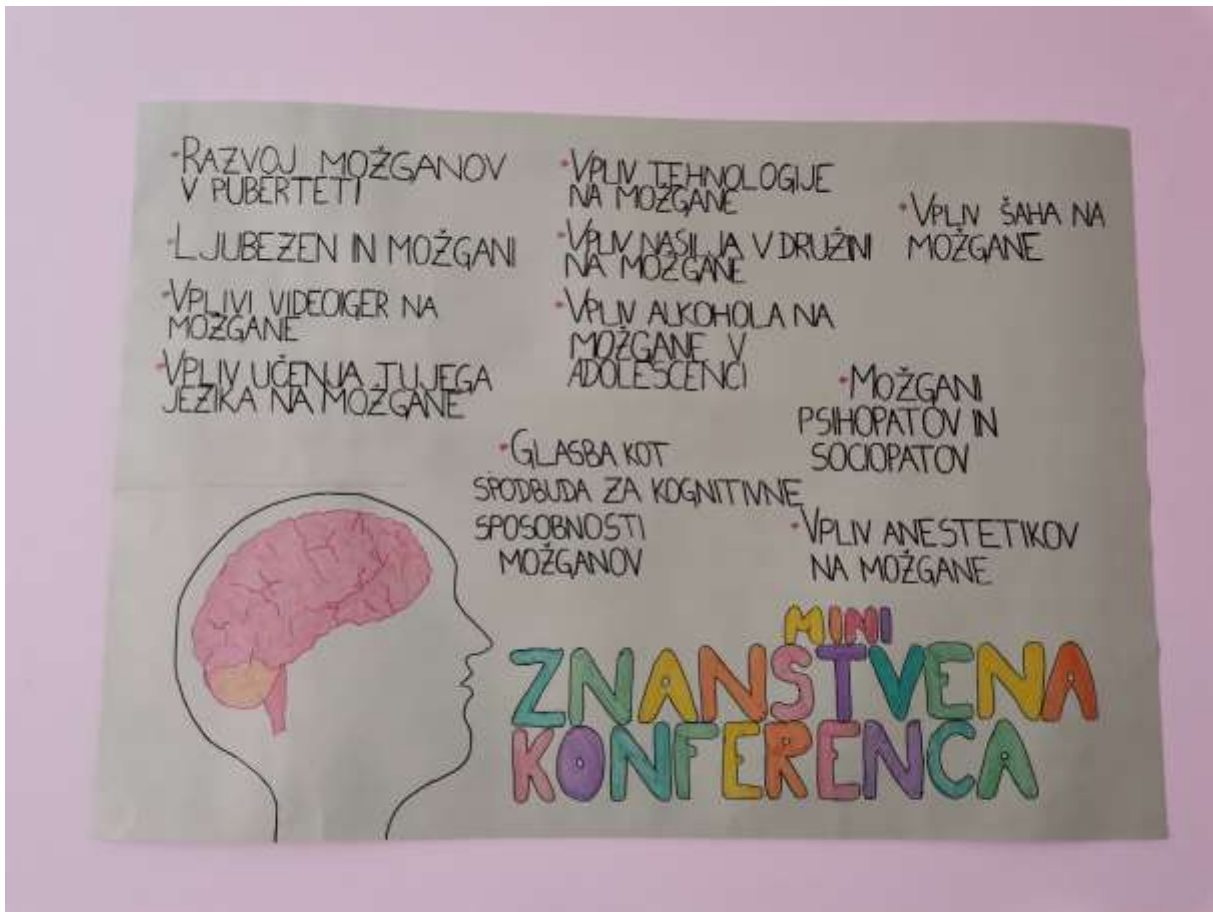 •RAZVOJ MOŽGANOV
V PUBERTETI
•LJUBEZEN IN MOŽGANI
•VPLIVI VIDEOIGER NA
MOŽGANE
•VPLIV UČENJA TUJEGA
JEZIKA NA MOŽGANE
•VPLIV TEHNOLOGIJE
NA MOŽGANE
•VPLIV NASILJA V DRUŽINI
NA MOŽGANE
•VPLIV ALKOHOLA NA
MOŽGANE V
ADOLESCENCI
•VPLIV ŠAHA NA
MOŽGANE
•MOŽGANI
PSIHOPATOV IN
SOCIOPATOV
•GLASBA KOT
SPODBUDA ZA KOGNITIVNE
SPOSOBNOSTI
MOŽGANOV
•VPLIV ANESTETIKOV
NA MOŽGANE
MINI
ZNANSTVENA
KONFERENCA